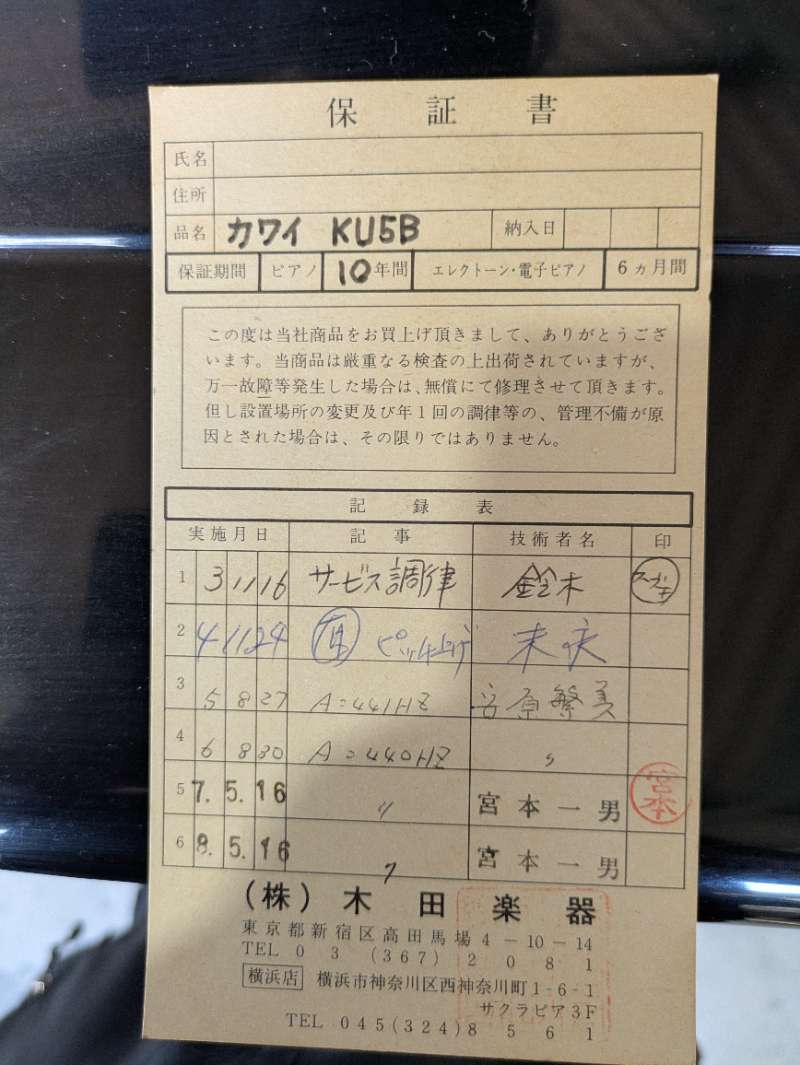 保証書
氏名
住所
品名 カワイ KU5B 納入日
保証期間 ピアノ 10年間 エレクトーン・電子ピアノ 6ヵ月間
この度は当社商品をお買上げ頂きまして、ありがとうござ
います。当商品は厳重なる検査の上出荷されていますが、
万一故障等発生した場合は、無償にて修理させて頂きます。
但し設置場所の変更及び年1回の調律等の、管理不備が原
因とされた場合は、その限りではありません。
記録表
実施月日 記事 技術者名 印
1 3 11 16 サービス調律 鈴木
2 4 11 24 ピッチ上げ 末永
3 5 8 27 A=441HZ 宮原繁美
4 6 8 30 A=440HZ 〃
5 7. 5. 16 〃 宮本一男 宮本
6 8. 5. 16 〃 宮本一男
(株)木田楽器
東京都新宿区高田馬場4-10-14
TEL 03(367)2081
横浜店 横浜市神奈川区西神奈川町1-6-1
サクラピア3F
TEL 045(324)8561